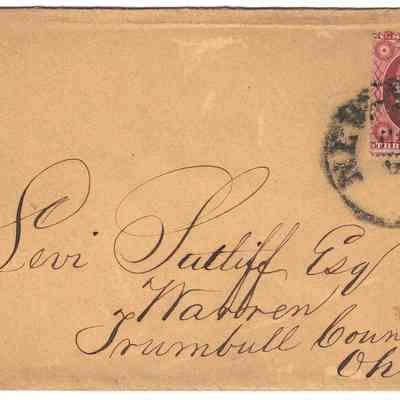 Levi Sutliff Esq
Warren
Trumbull Coun
Oh
NEW